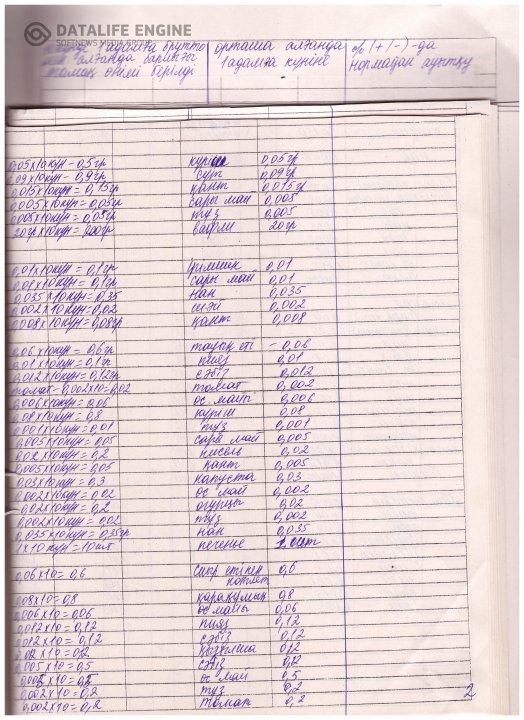 DATALIFE ENGINE
SOFTNEWS MEDIA GROUP
1 адамға брутто орташа алғанда % (+/-)-да
алғанда барлығы 1 адамға күніне нормадан ауытқу
тамақ өнімі берілді
0,05х10күн - 0,5гр күріш 0,05гр
0,09х10күн - 0,9гр сүт 0,09гр
0,015х10күн = 0,15гр қант 0,015гр
0,005х10күн = 0,05гр сары май 0,005
0,005х10күн = 0,05гр тұз 0,005
20гр х10күн = 200гр вафли 20гр
0,01х10күн = 0,1гр ірімшік 0,01
0,01х10күн = 0,1гр сары май 0,01
0,035х10күн = 0,35 нан 0,035
0,002х10күн = 0,02 шәй 0,002
0,008х10күн = 0,08гр қант 0,008
0,06х10күн = 0,6гр тауық еті - 0,06
0,01х10күн = 0,1гр пияз 0,01
0,012х10күн = 0,12гр сәбіз 0,012
томат - 0,002х10 = 0,02 томат 0,002
0,006х10күн = 0,06 өс. майы 0,006
0,08х10күн = 0,8 күріш 0,08
0,001х10күн = 0,01 тұз 0,001
0,005х10күн = 0,05 сары май 0,005
0,02х10күн = 0,2 кисель 0,02
0,005х10күн = 0,05 қант 0,005
0,03х10күн = 0,3 капуста 0,03
0,002х10күн = 0,02 өс май 0,002
0,02х10күн = 0,2 огурцы 0,02
0,002х10күн = 0,02 тұз 0,002
0,035х10күн = 0,35гр нан 0,035
1х10күн = 10шт печенье 1 шт
0,06х10 = 0,6 сиыр етінен 0,6
котлет
0,08х10 = 0,8 қарақұмық 0,8
0,006х10 = 0,06 өс майы 0,06
0,012х10 = 0,12 пияз 0,12
0,012х10 = 0,12 сәбіз 0,12
0,02х10 = 0,2 0,2
0,005х10 = 0,5 сәбіз
өс май 0,5
0,002х10 = 0,2 тұз 0,2
0,002х10 = 0,2 томат 0,2
2